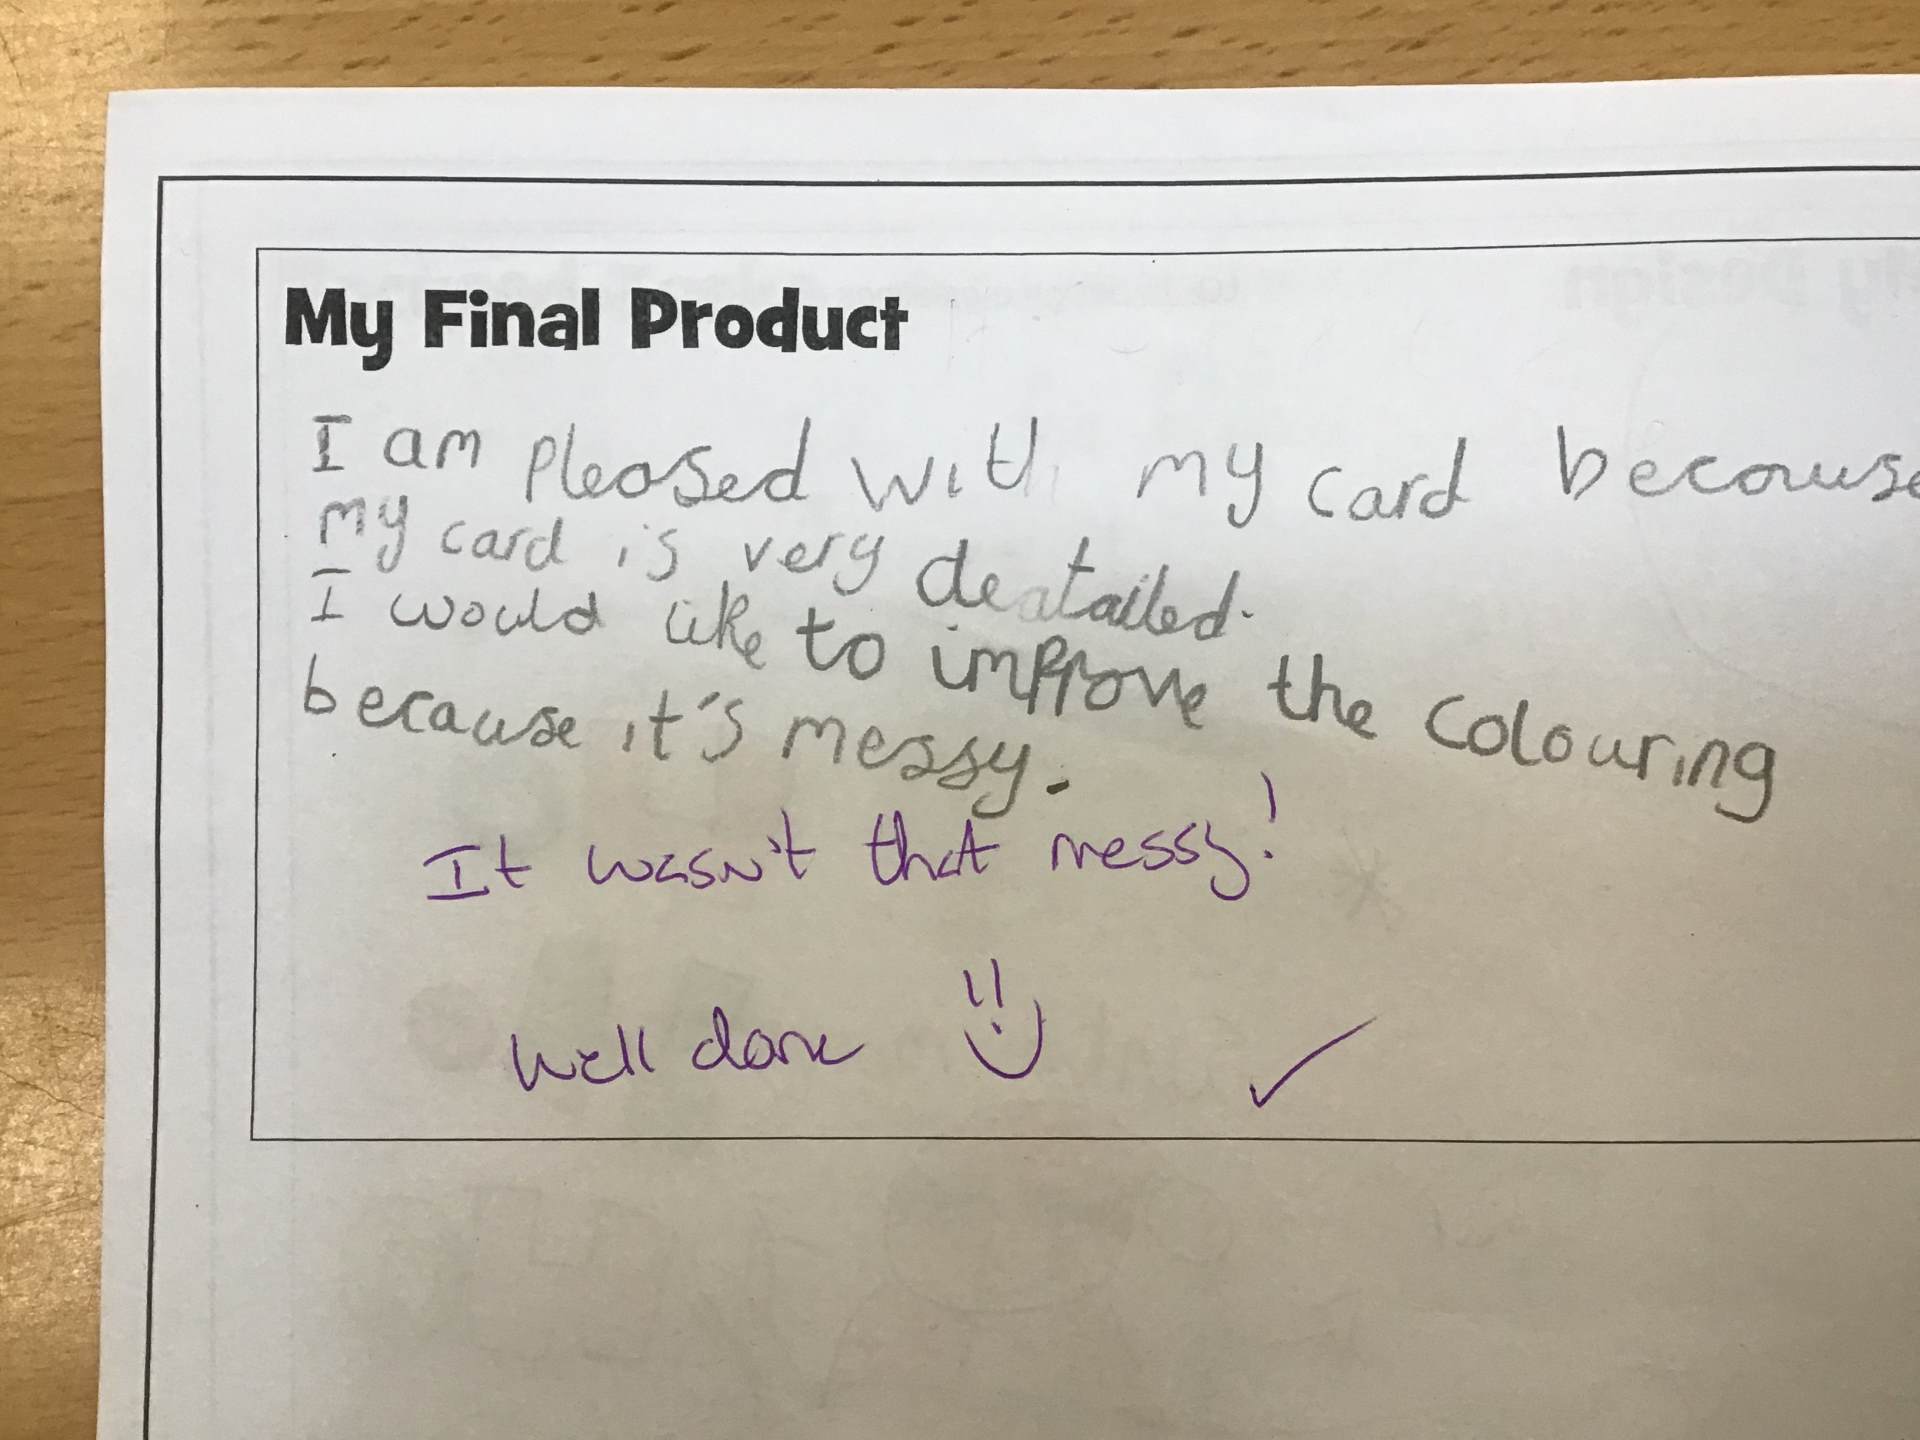 My Final Product
I am pleased with my card because
my card is very deatailed.
I would like to improve the colouring
because it's messy.
It wasn't that messy!
Well done
My Design